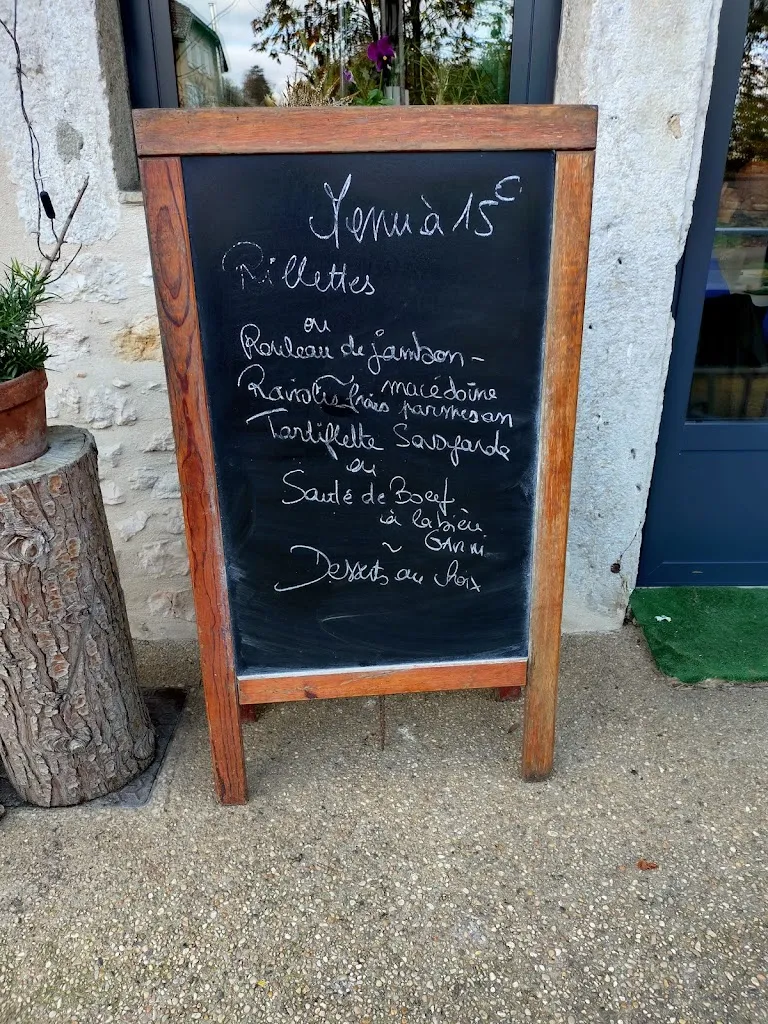 Menu à 15€
Rillettes
ou
Rouleau de jambon -
macédoine
Raviolis frais parmesan
Tartiflette Savoyarde
ou
Sauté de Boeuf
à la bière
GARNI
~
Desserts au choix